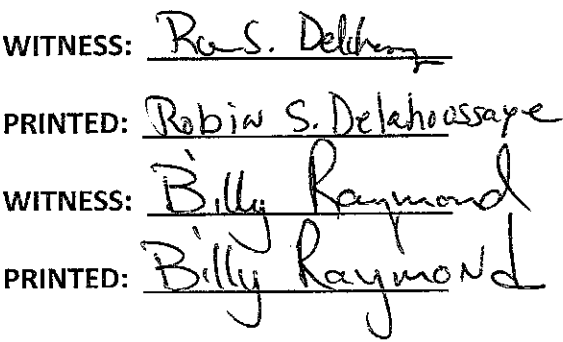 WITNESS: S.
PRINTED: Robin S. Delahoussaye
WITNESS: Billy Raymond
PRINTED: Billy Raymond